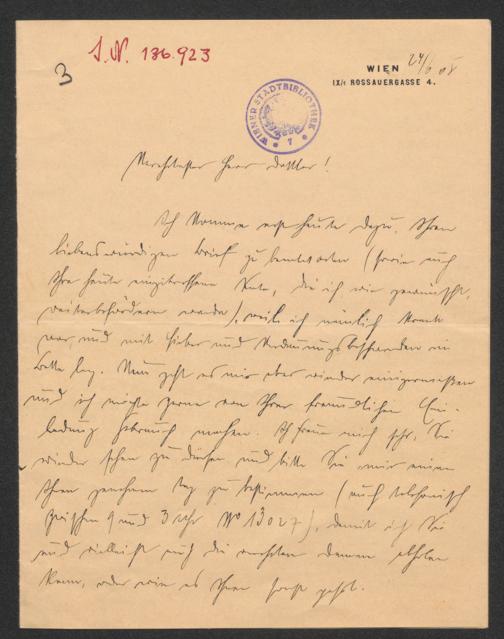 J. N. 136.923
3
WIEN 24/6 08
IX/1 ROSSAUERGASSE 4.
WIENER STADTBIBLIOTHEK
Verehrtester Herr Doktor!
Ich komme erst heute dazu, Ihren
liebenswürdigen Brief zu beantworten (sowie auch
Ihre heute eingetroffene Karte, die ich wie gewünscht,
weiterbefördern werde), weil ich nämlich krank
war und mit Fieber und Verdauungsbeschwerden im
Bette lag. Nun geht es mir aber wieder einigermaßen
und ich möchte gerne von Ihrer freundlichen Ein-
ladung Gebrauch machen. Ich freue mich sehr, Sie
wieder sehen zu dürfen und bitte Sie mir einen
Ihnen genehmen Tag zu bestimmen (auch telefonisch
zwischen und 3 Uhr No 13027), damit ich Sie
und vielleicht auch die Damen abholen
kann, oder wie es Ihnen sonst paßt.